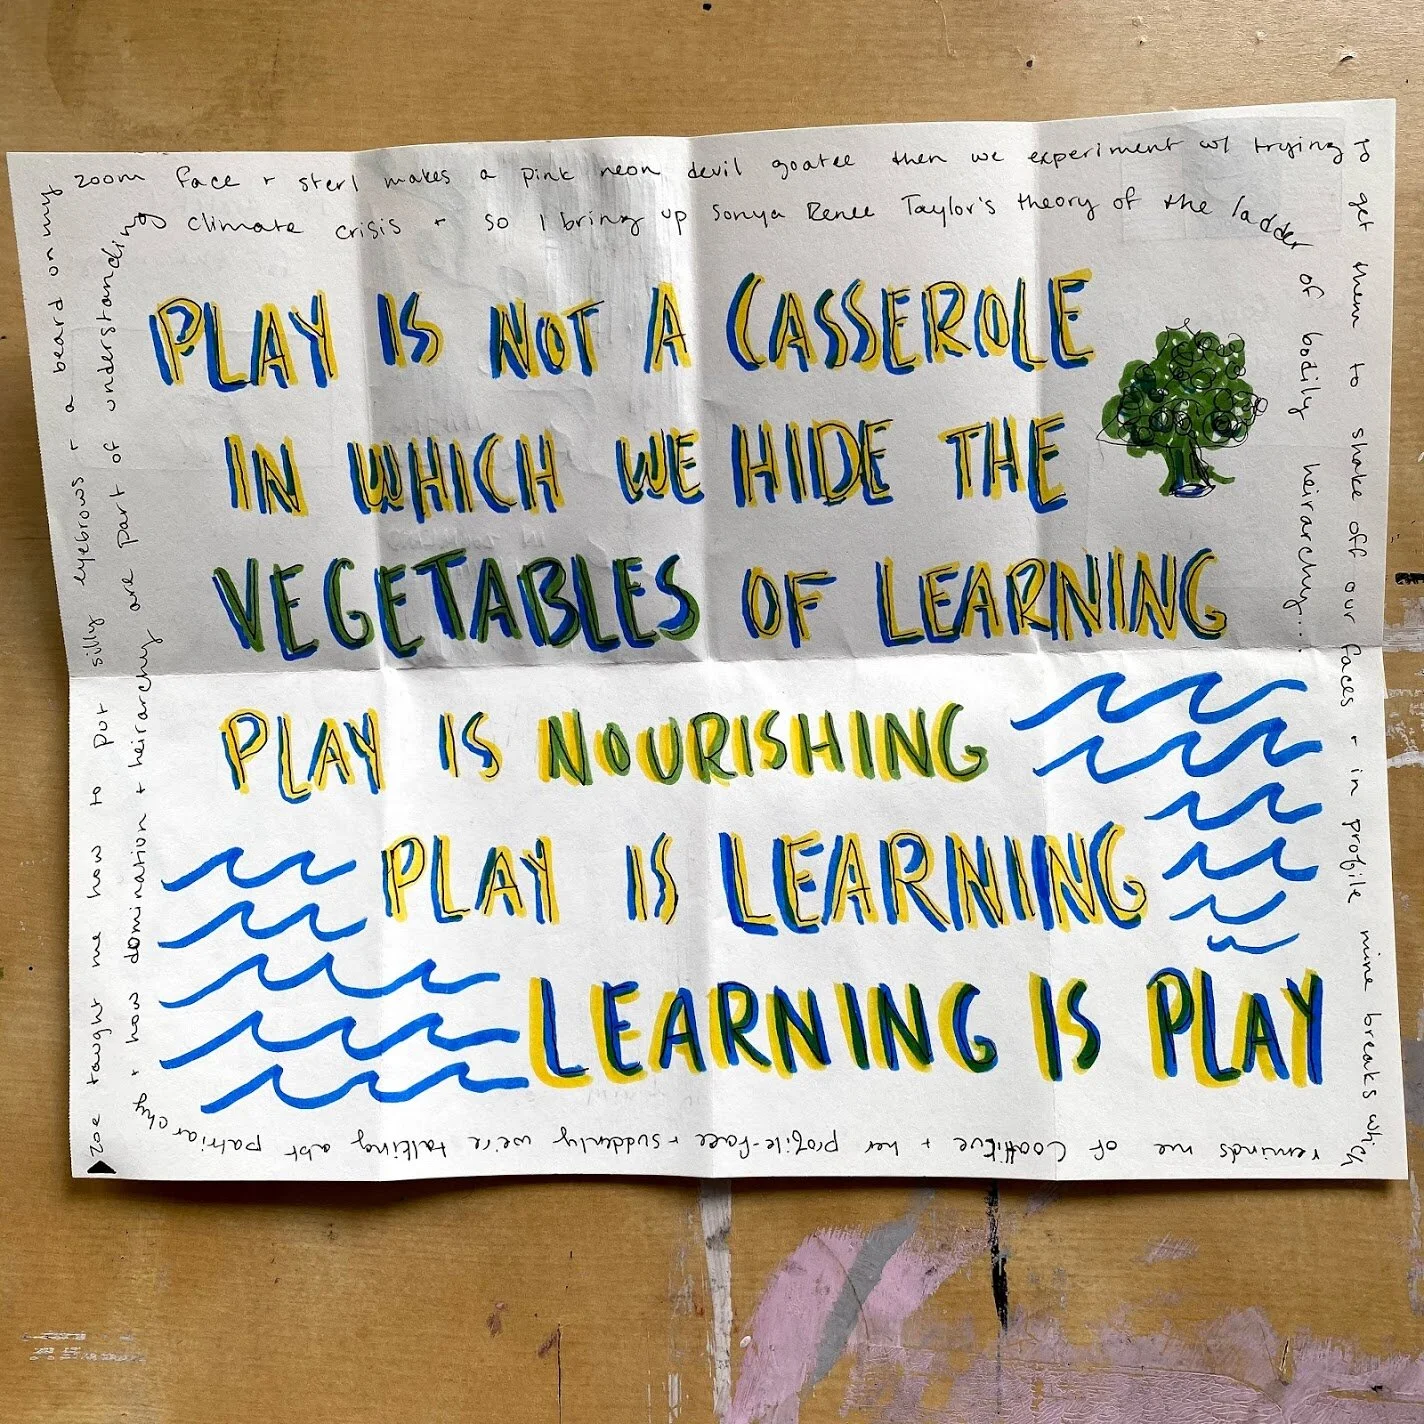 PLAY IS NOT A CASSEROLE
IN WHICH WE HIDE THE
VEGETABLES OF LEARNING
PLAY IS NOURISHING
PLAY IS LEARNING
LEARNING IS PLAY
zoe taught me how to put silly eyebrows + a beard on my
zoom face + sterl makes a pink neon devil goatee then we experiment w/ trying
to get them to shake off our faces + in profile mine breaks which
reminds me of Coatlicue + her profile-face + suddenly we're talking abt patriarchy
+ how domination + heirarchy are part of understanding
climate crisis + so I bring up Sonya Renee Taylor's theory of the ladder
of bodily heirarchy...